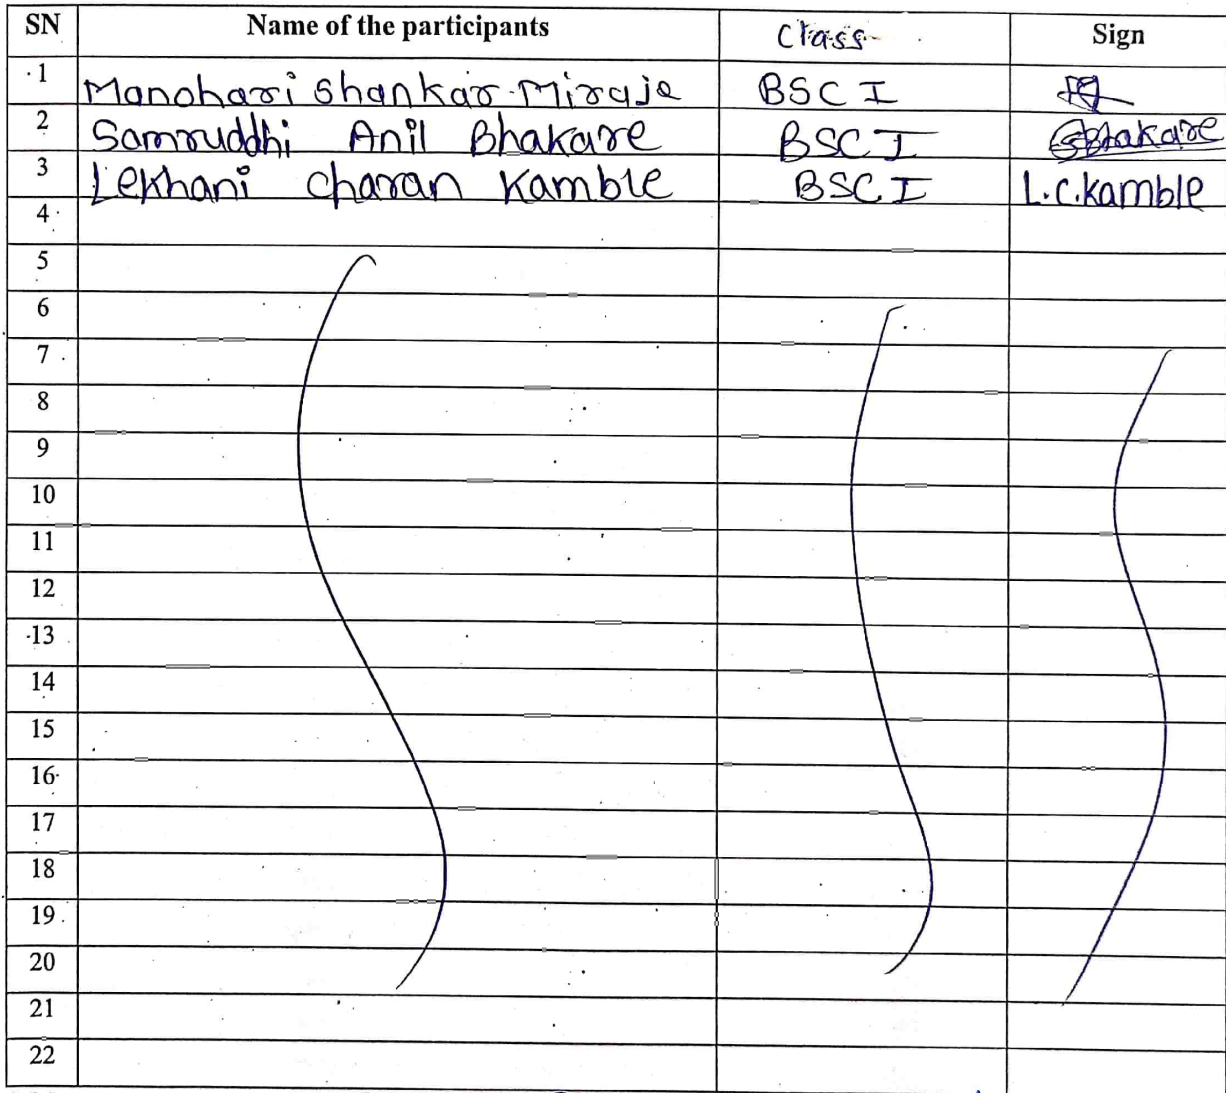 SN Name of the participants Class Sign
1 Manohari Shankar Miraje BSC I
2 Samruddhi Anil Bhakare BSC I Bhakare
3 Lekhani Charan Kamble BSC I L.C.Kamble
4
5
6
7
8
9
10
11
12
13
14
15
16
17
18
19
20
21
22